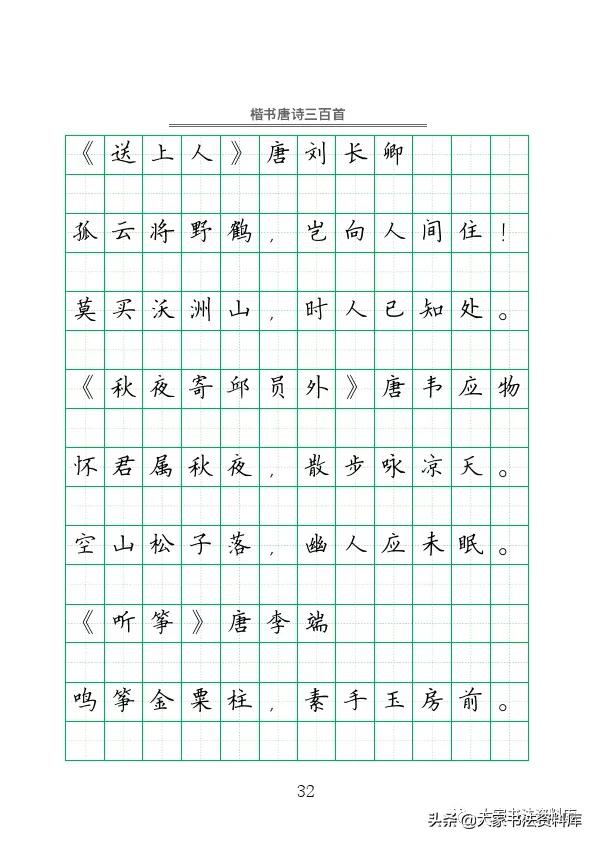 楷书唐诗三百首
《送上人》唐刘长卿
孤云将野鹤，岂向人间住！
莫买沃洲山，时人已知处。
《秋夜寄邱员外》唐韦应物
怀君属秋夜，散步咏凉天。
空山松子落，幽人应未眠。
《听筝》唐李端
鸣筝金粟柱，素手玉房前。
32
大家书法资料库
头条@大家书法资料库